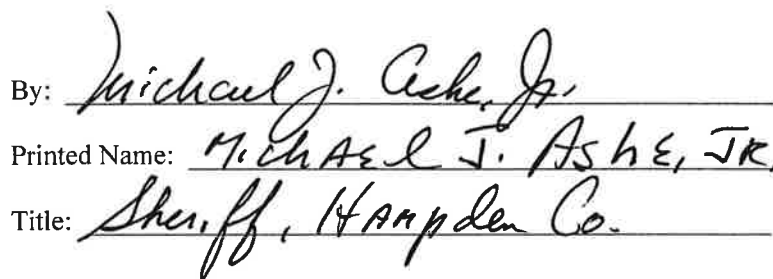 By: Michael J. Ashe, Jr.
Printed Name: MichAEl J. AshE, JR.
Title: Sheriff, HAmpden Co.